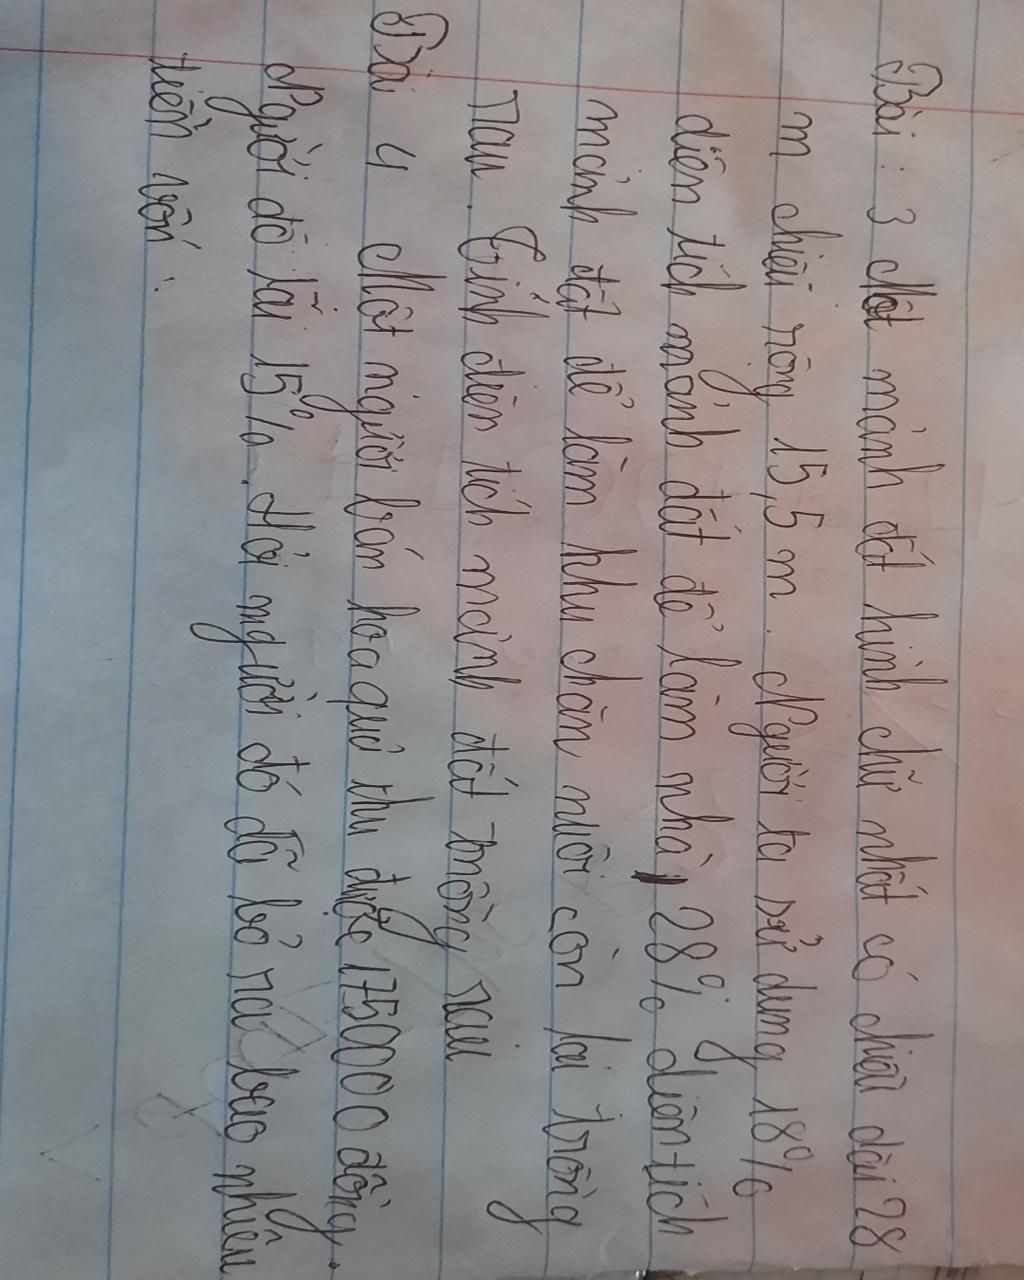 Bài : 3 Một mảnh đất hình chữ nhật có chiều dài 28
m chiều rộng 15,5 m. Người ta sử dụng 18%
diện tích mảnh đất để làm nhà, 28% diện tích
mảnh đất để làm khu chăn nuôi còn lại trồng
rau. Tính diện tích mảnh đất trồng rau
Bài 4 Một người bán hoa quả thu được 1750000 đồng.
Người đó lãi 15%. Hỏi người đó đã bỏ ra bao nhiêu
tiền vốn.